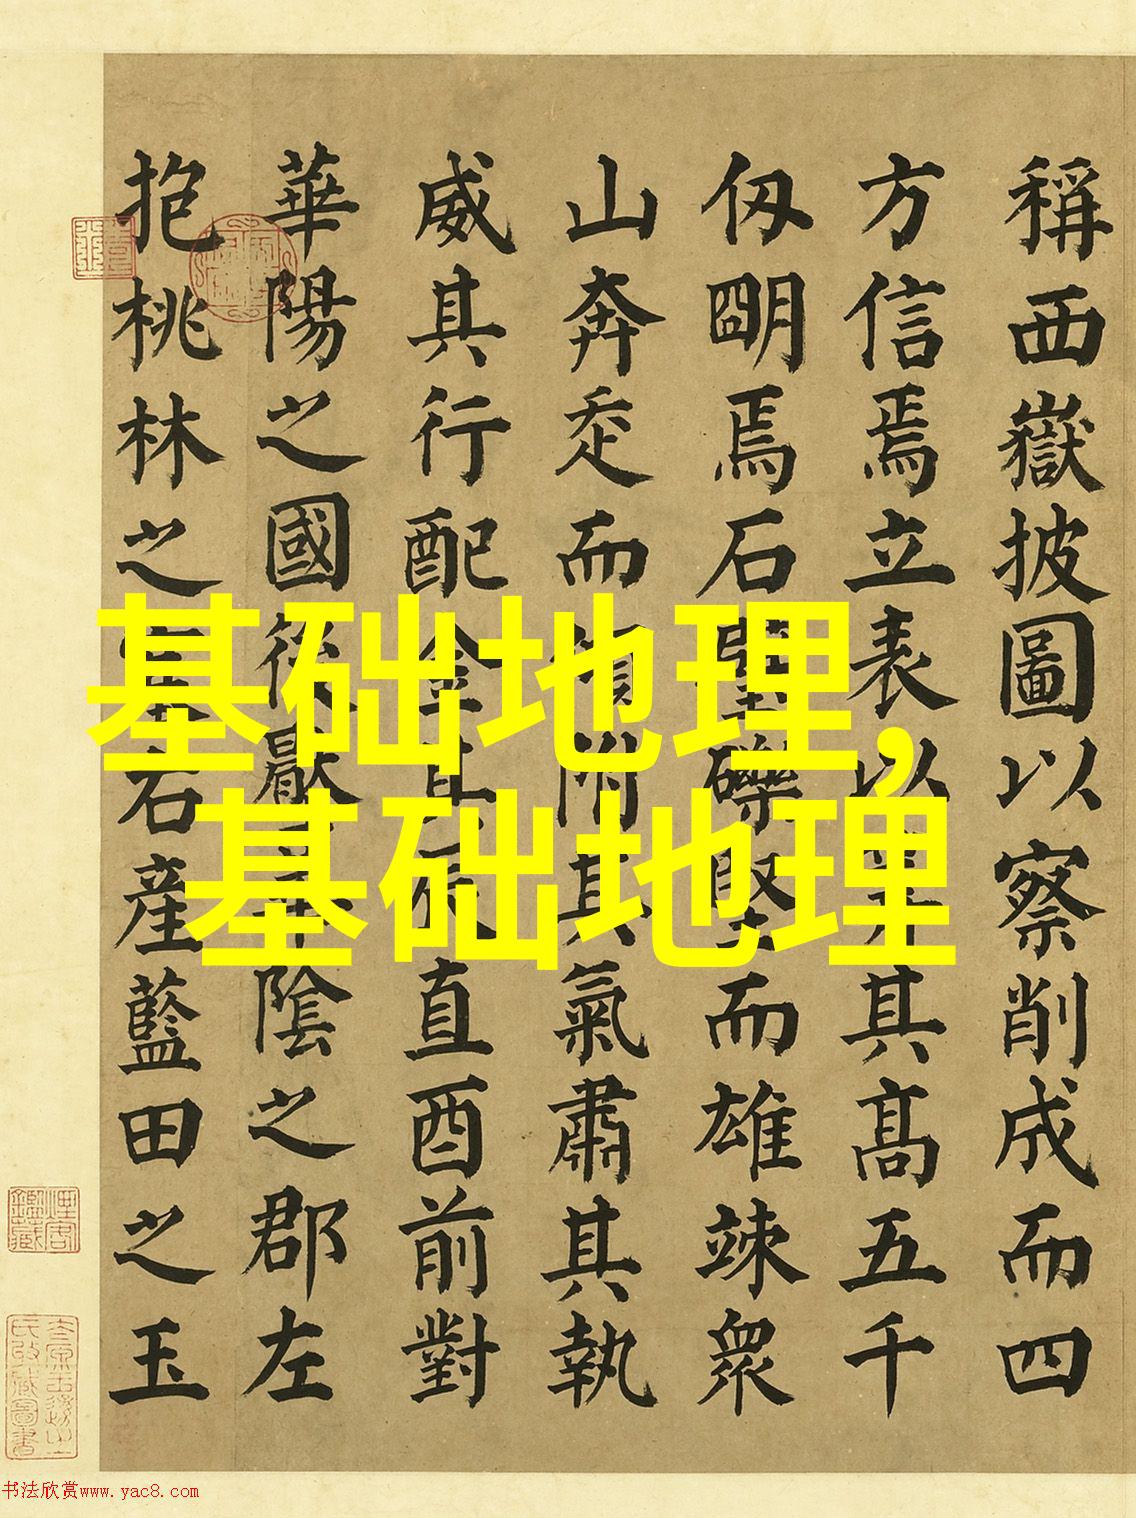 稱西嶽披圖以察削成而四
方信焉立表以其髙五千
仭朙焉石壁礫堅而雄竦衆
山奔走而附其氣肅其執
威其行配金其辰直酉前對
華陽之國後陰之郡左
抱桃林之右産藍田之玉
基础地理,
基础地理
书法欣赏www.yac8.com